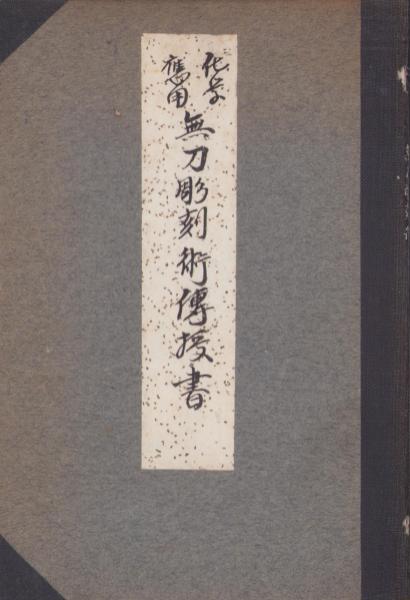 化学
應用
無刀彫刻術傳授書